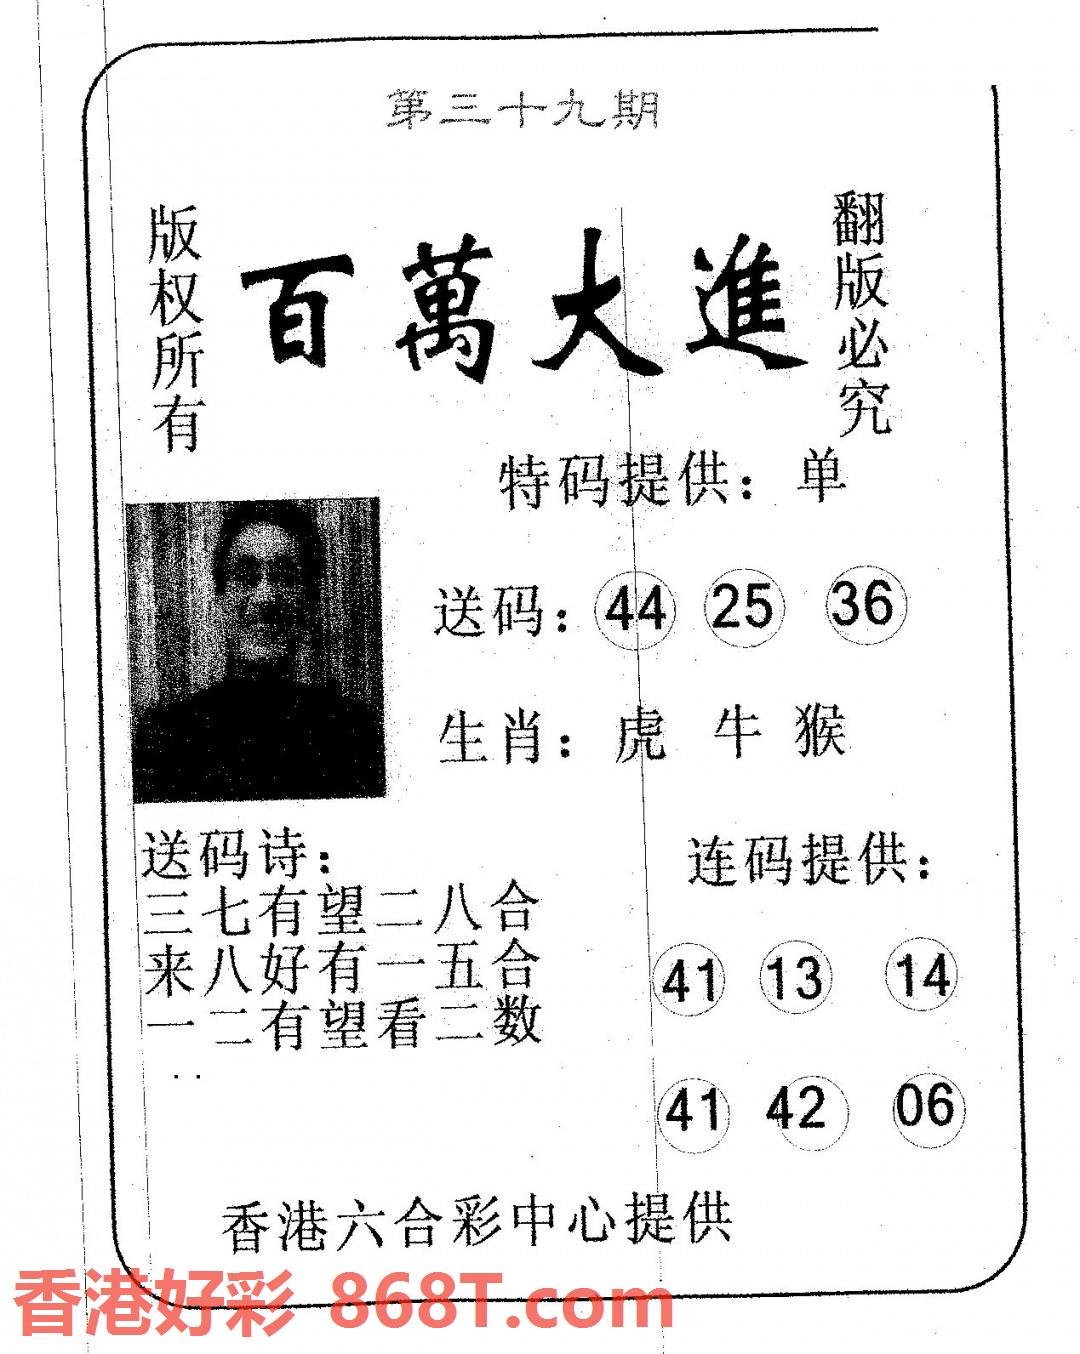 第三十九期
版权所有
百萬大進
翻版必究
特码提供：单
送码：44 25 36
生肖：虎 牛 猴
送码诗：
三七有望二八合
来八好有一五合
一二有望看二数
连码提供：
41 13 14
41 42 06
香港六合彩中心提供
香港好彩 868T.com